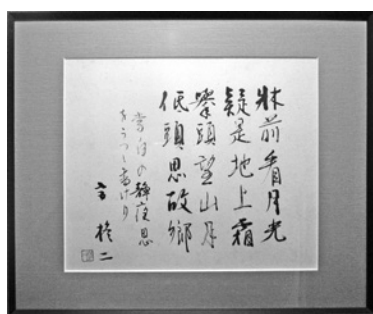 牀前看月光
疑是地上霜
擧頭望山月
低頭思故郷
李白の静夜思
をうつし